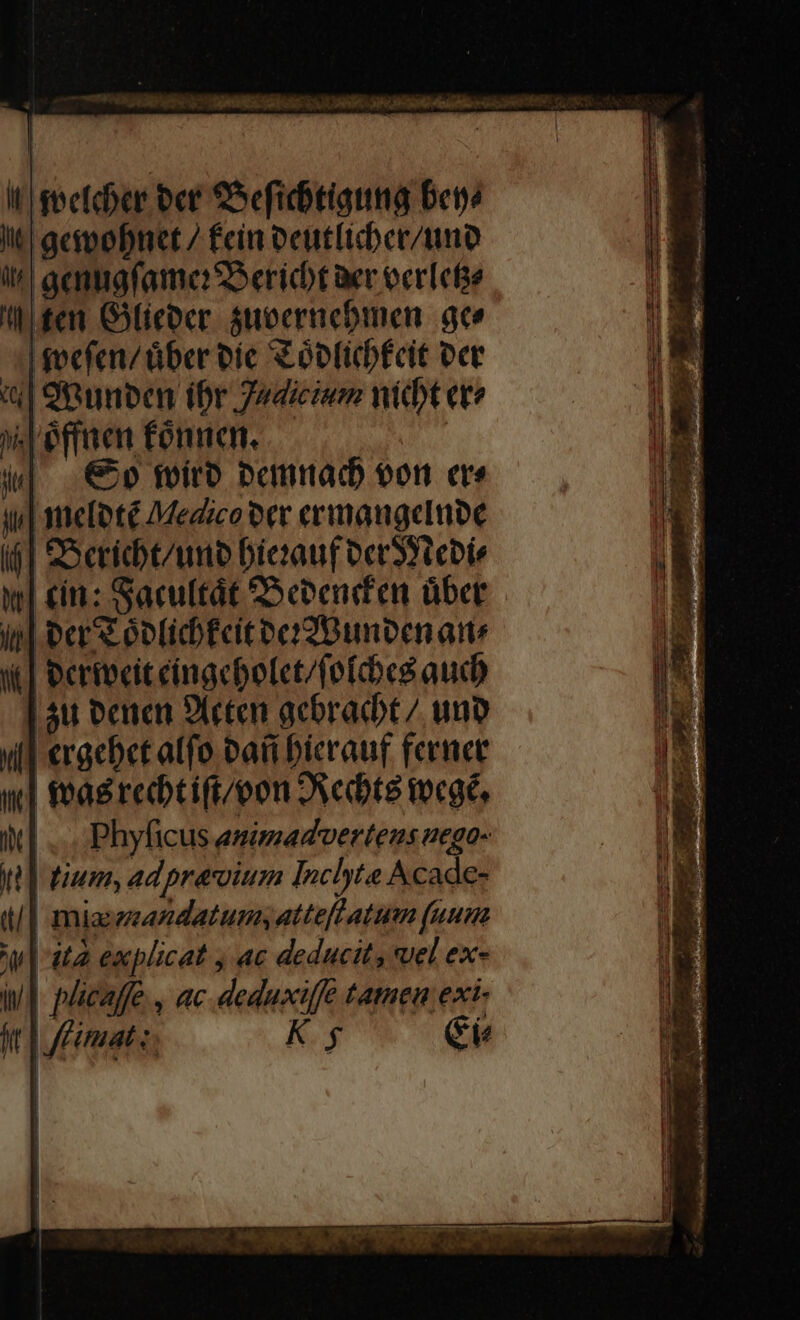 welcher der Beſichtigung bey⸗
gewohnet / kein deutlicher/und
genugſamer Bericht der verletz⸗
ten Glieder zuvernehmen ge⸗
weſen/ uͤber die Toͤdlichkeit der
Wunden ihr Judicium nicht er⸗
oͤffnen koͤnnen.
So wird demnach von er⸗
meldtẽ Medico der ermangelnde
Bericht/und hierauf der Medi⸗
cin: Facultaͤt Bedencken uͤber
der Toͤdlichkeit der Wunden an⸗
derweit eingeholet/ſolches auch
zu denen Acten gebracht / und
ergehet alſo dañ hierauf ferner
was recht iſt/von Rechts wegẽ,
Phyſicus animadvertens nego-
tium, ad prævium Inclytæ Acade-
miæ mandatum, atteſtatum ſuum
ità explicat , ac deducit, vel ex-
plicaſſe , ac deduxiſſe tamen exi-
ſtimat:
K 5 Ei⸗